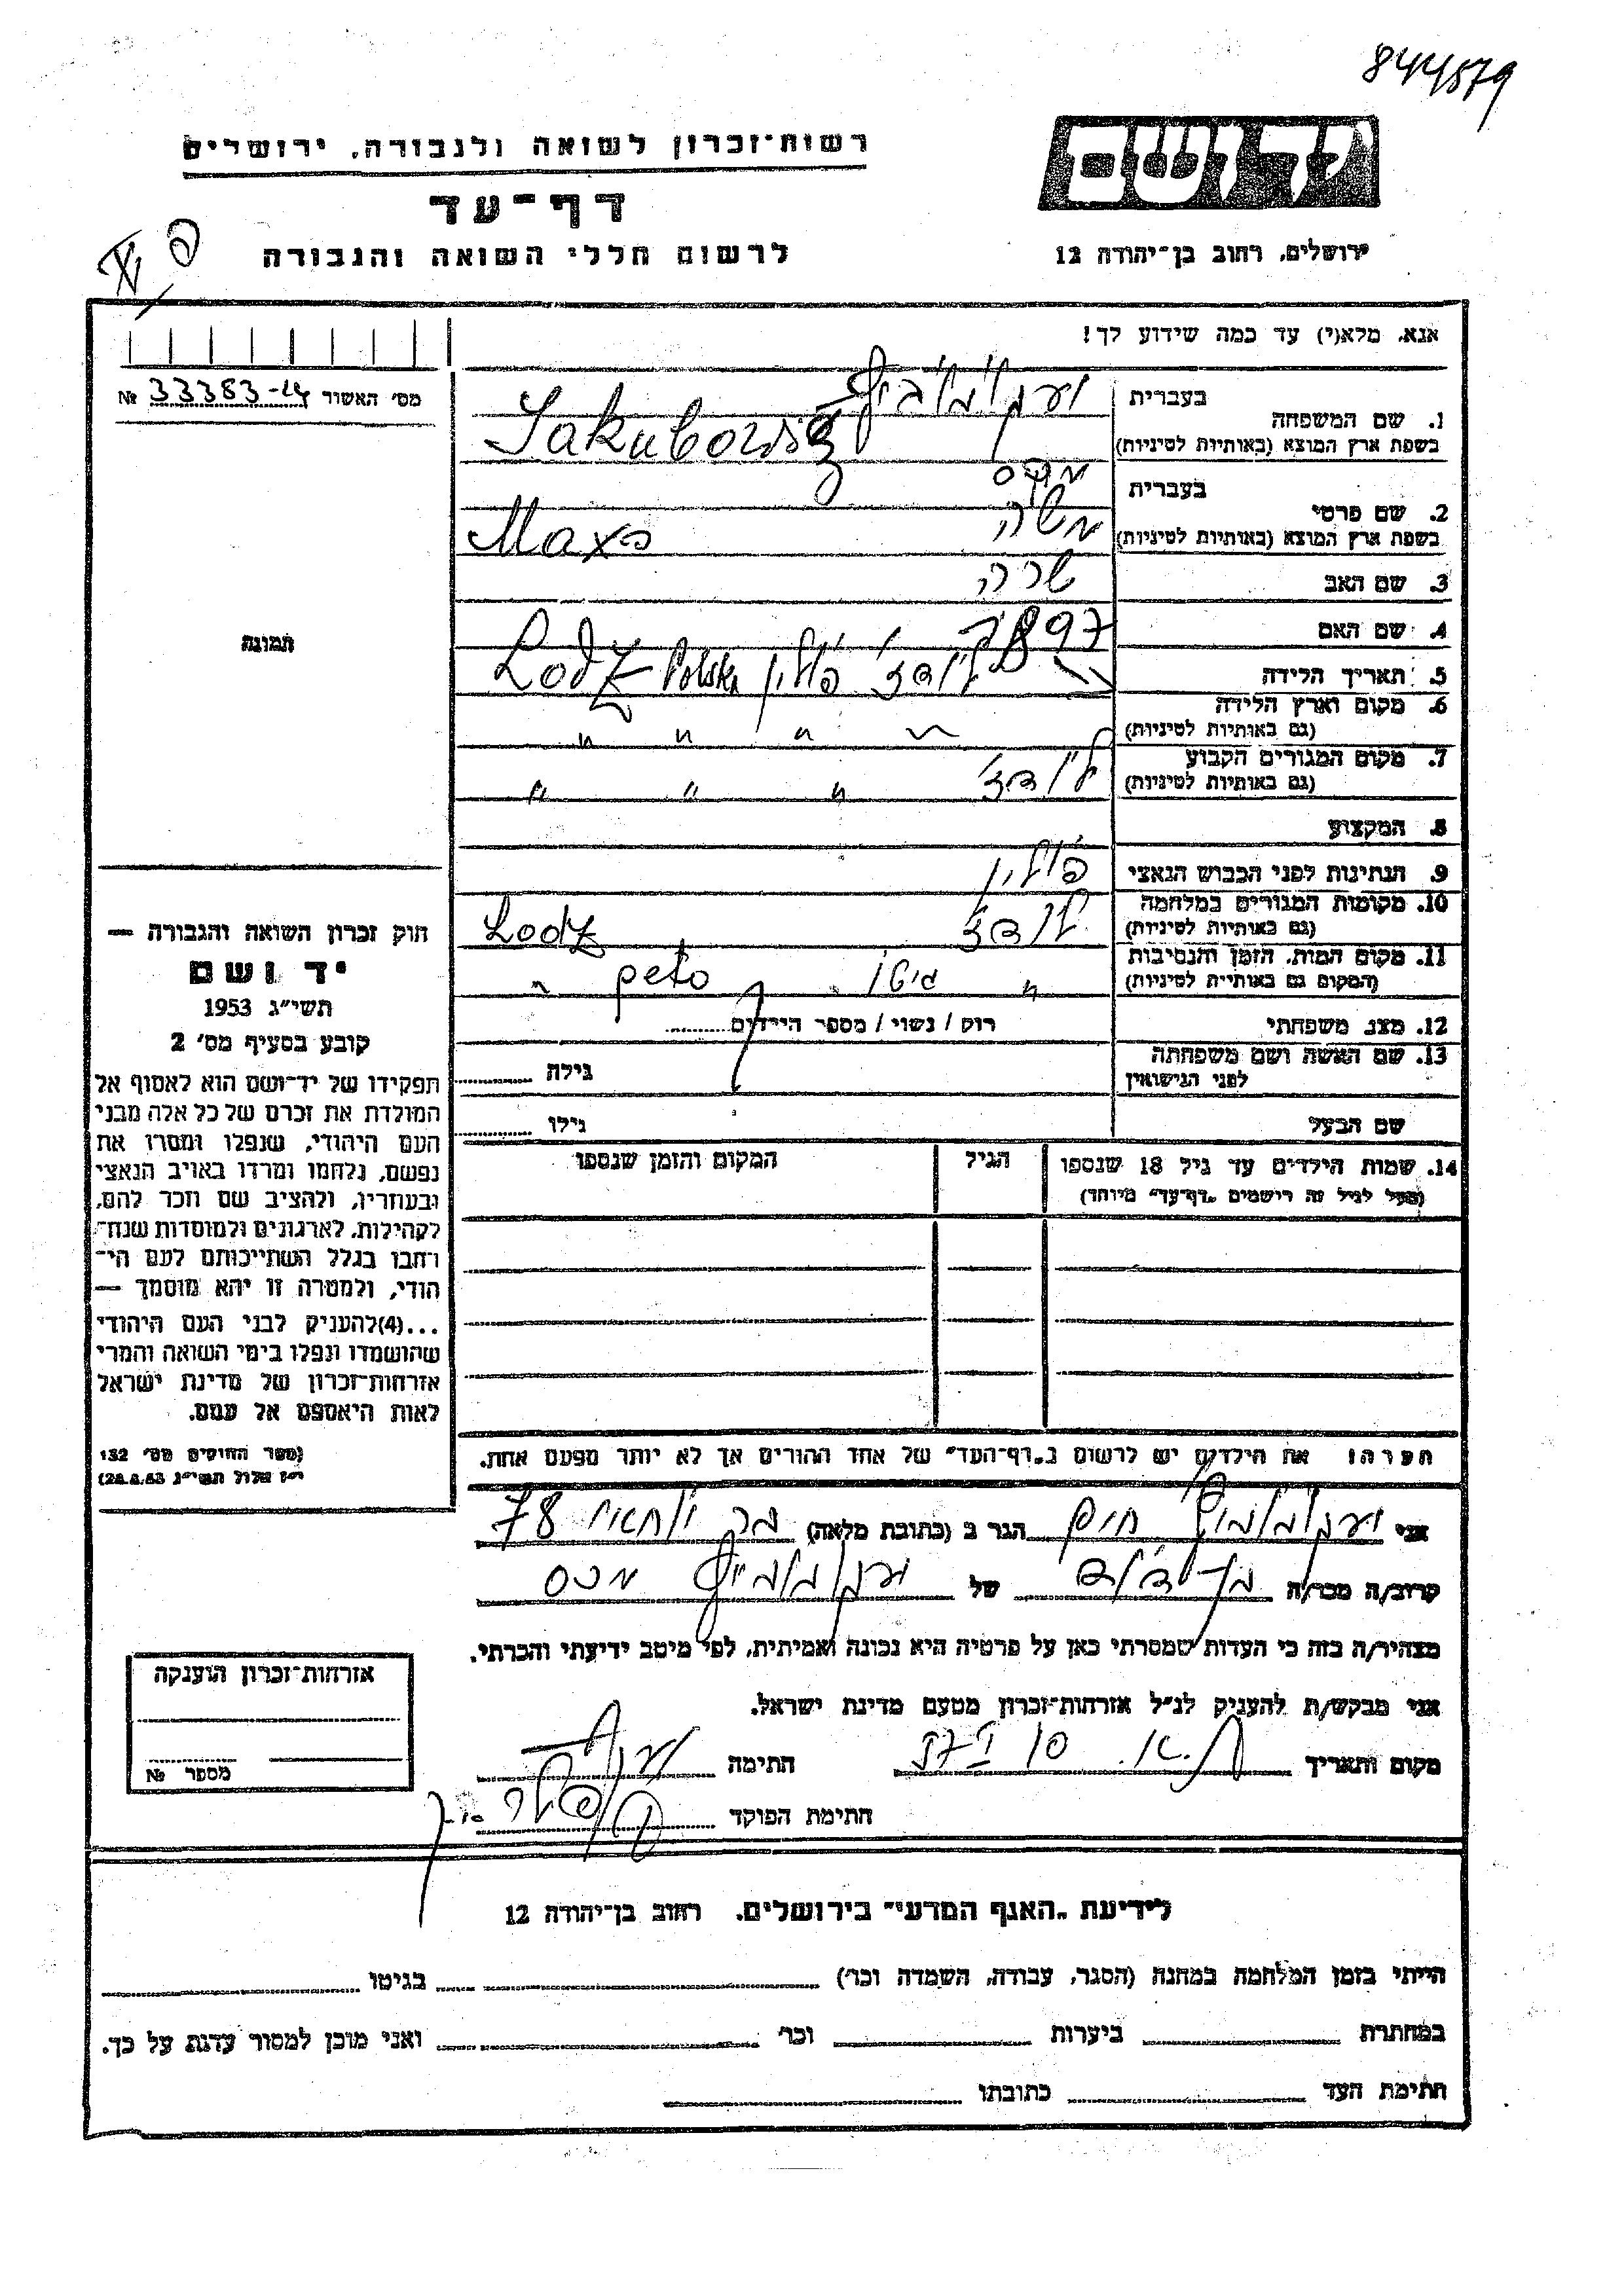 844579
רשות־זכרון לשואה ולגבורה, ירושלים
דף־עד
לרשום חללי השואה והגבורה
יד ושם
ירושלים, רחוב בן־יהודה 12
אנא, מלא(י) עד כמה שידוע לך!
מס' האשור 33383-14 №
תמונה
1. שם המשפחה
בעברית
בשפת ארץ המוצא (באותיות לטיניות)
Jakubowicz
2. שם פרטי
בעברית מקס
בשפת ארץ המוצא (באותיות לטיניות)
Max
3. שם האב משה
4. שם האם שרה
5. תאריך הלידה 1897
6. מקום וארץ הלידה
(גם באותיות לטיניות)
לודז' פולין Lodz Polska
7. מקום המגורים הקבוע
(גם באותיות לטיניות)
לודז' " " "
8. המקצוע
9. הנתינות לפני הכבוש הנאצי פולין
10. מקומות המגורים במלחמה
(גם באותיות לטיניות)
לודז' Lodz
11. מקום המות, הזמן והנסיבות
(המקום גם באותיות לטיניות)
" גיטו "
12. מצב משפחתי רווק / נשוי / מספר הילדים
13. שם האשה ושם משפחתה
לפני הנישואין
גילה
שם הבעל
גילו
14. שמות הילדים עד גיל 18 שנספו
(מעל לגיל זה רישמים "דף־עד" מיוחד)
הגיל
המקום והזמן שנספו
חוק זכרון השואה והגבורה —
יד ושם
תשי״ג 1953
קובע בסעיף מס' 2
תפקידו של יד־ושם הוא לאסוף אל
המולדת את זכרם של כל אלה מבני
העם היהודי, שנפלו ומסרו את
נפשם, נלחמו ומרדו באויב הנאצי
ובעוזריו, ולהציב שם וזכר להם,
לקהילות, לארגונים ולמוסדות שנח־
רחבו בגלל השתייכותם לעם הי־
הודי, ולמטרה זו יהא מוסמך —
...(4)להעניק לבני העם היהודי
שהושמדו ונפלו בימי השואה והמרי
אזרחות־זכרון של מדינת ישראל
לאות היאספם אל עמם.
(ספר החוקים מס' 132
י״ז אלול תשי״ג 28.8.53)
הערה: את הילדים יש לרשום ב„דף־העד" של אחד ההורים אך לא יותר מפעם אחת.
אני יעקובוביץ חיים הגר ב (כתובת מלאה) בר יוחאי 78
קרוב/ה מכר/ה בן דוד של יעקובוביץ מכס
מצהיר/ה בזה כי העדות שמסרתי כאן על פרטיה היא נכונה ואמיתית, לפי מיטב ידיעתי והכרתי.
אני מבקש/ת להעניק לנ״ל אזרחות־זכרון מטעם מדינת ישראל.
מקום ותאריך ת.א. חתימה
חתימת הפוקד
אזרחות־זכרון הוענקה
מספר №
לידיעת „האגף המדעי" בירושלים, רחוב בן־יהודה 12
הייתי בזמן המלחמה במחנה (הסגר, עבודה, השמדה וכו') בגיטו
במחתרת ביערות וכו' ואני מוכן למסור עדות על כך.
חתימת העד כתובתו